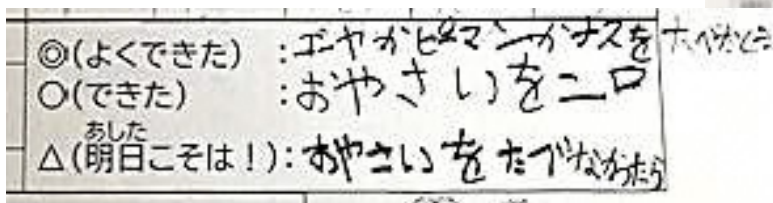 ◎(よくできた) :ゴーヤかピーマンかナスをたべたとき
○(できた) :おやさいを二口
あした
△(明日こそは!):おやさいをたべなかったら